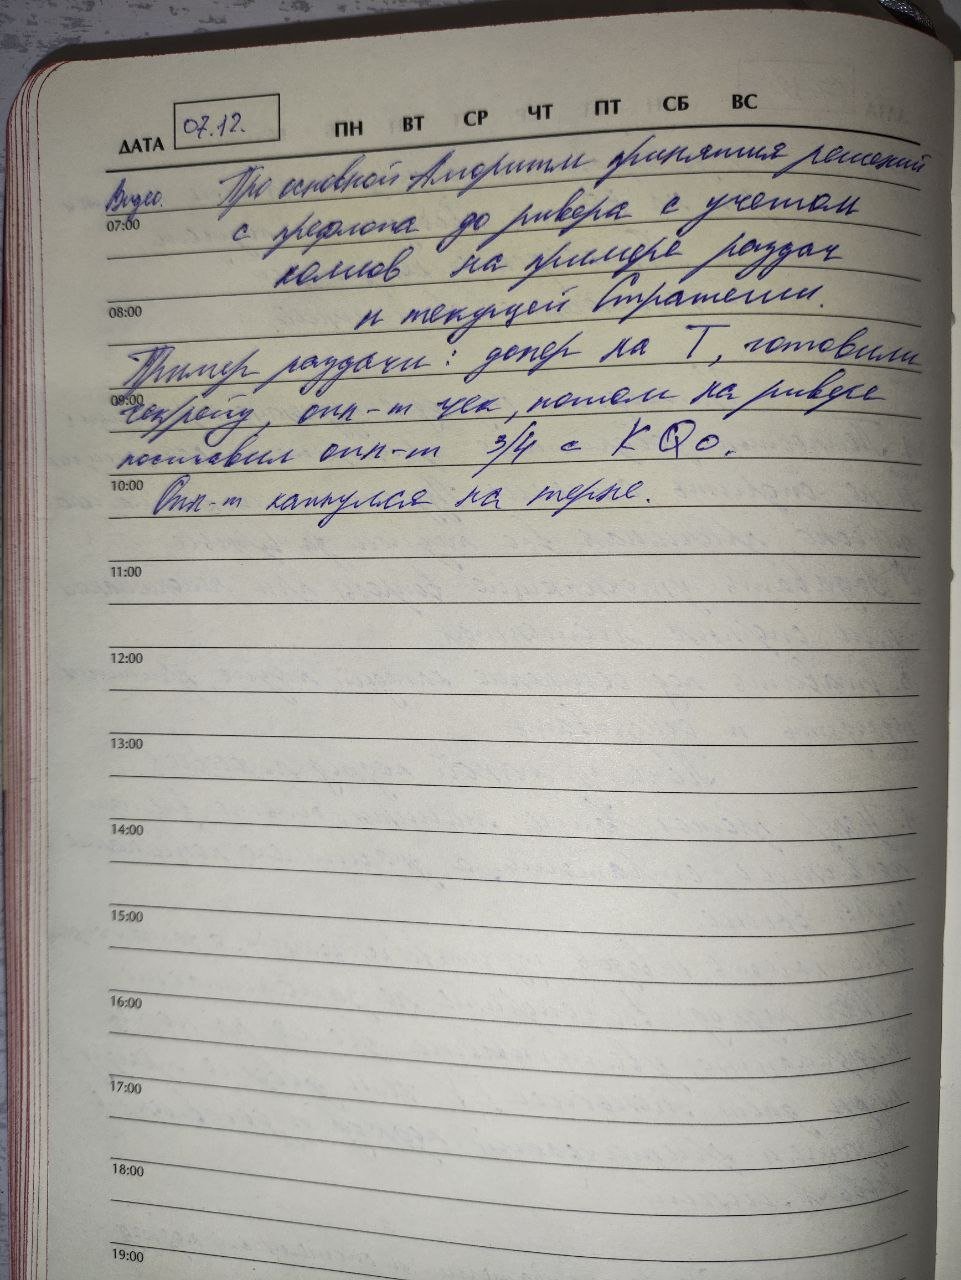 ДАТА 07.12. ПН ВТ СР ЧТ ПТ СБ ВС
Видео. Про основной Алгоритм принятия решений
07:00
с префлопа до ривера с учетом
колов на примере раздач
08:00
и текущей Стратегии.
Пример раздачи: донер на Т, готовили
09:00
чекрейз, опп-т чек, потом на ривере
поставил опп-т 3/4 с KQo.
10:00
Опп-т капнулся на терне.
11:00
12:00
13:00
14:00
15:00
16:00
17:00
18:00
19:00